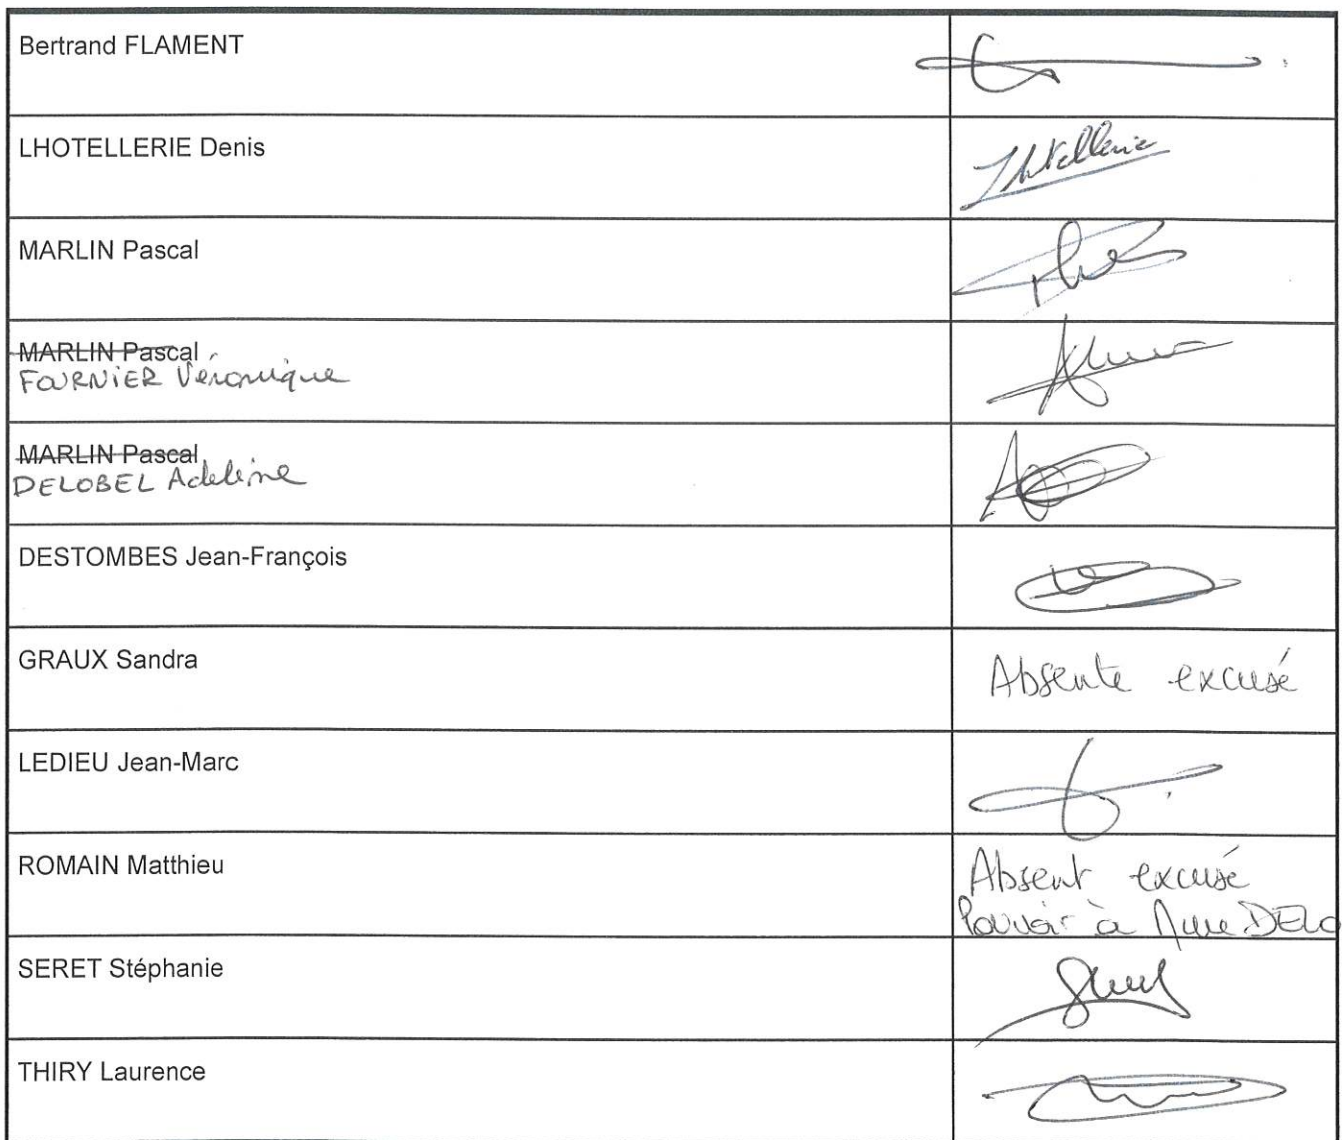 Bertrand FLAMENT
LHOTELLERIE Denis
Lhotellerie
MARLIN Pascal
MARLIN Pascal
FOURNIER Véronique
MARLIN Pascal
DELOBEL Adeline
DESTOMBES Jean-François
GRAUX Sandra
Absente excusé
LEDIEU Jean-Marc
ROMAIN Matthieu
Absent excusé
Pouvoir à Mme DELO
SERET Stéphanie
THIRY Laurence